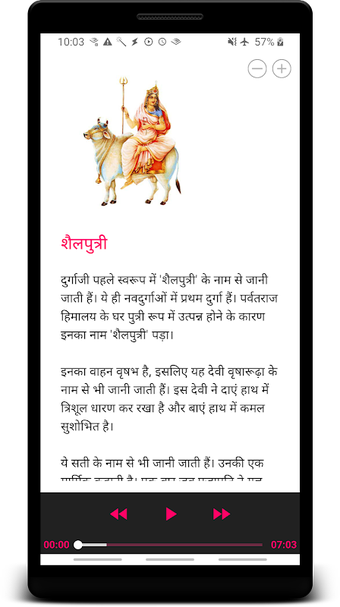 10:03
57%
शैलपुत्री
दुर्गाजी पहले स्वरूप में 'शैलपुत्री' के नाम से जानी
जाती हैं। ये ही नवदुर्गाओं में प्रथम दुर्गा हैं। पर्वतराज
हिमालय के घर पुत्री रूप में उत्पन्न होने के कारण
इनका नाम 'शैलपुत्री' पड़ा।
इनका वाहन वृषभ है, इसलिए यह देवी वृषारूढ़ा के
नाम से भी जानी जाती हैं। इस देवी ने दाएं हाथ में
त्रिशूल धारण कर रखा है और बाएं हाथ में कमल
सुशोभित है।
ये सती के नाम से भी जानी जाती हैं। उनकी एक
00:00
07:03